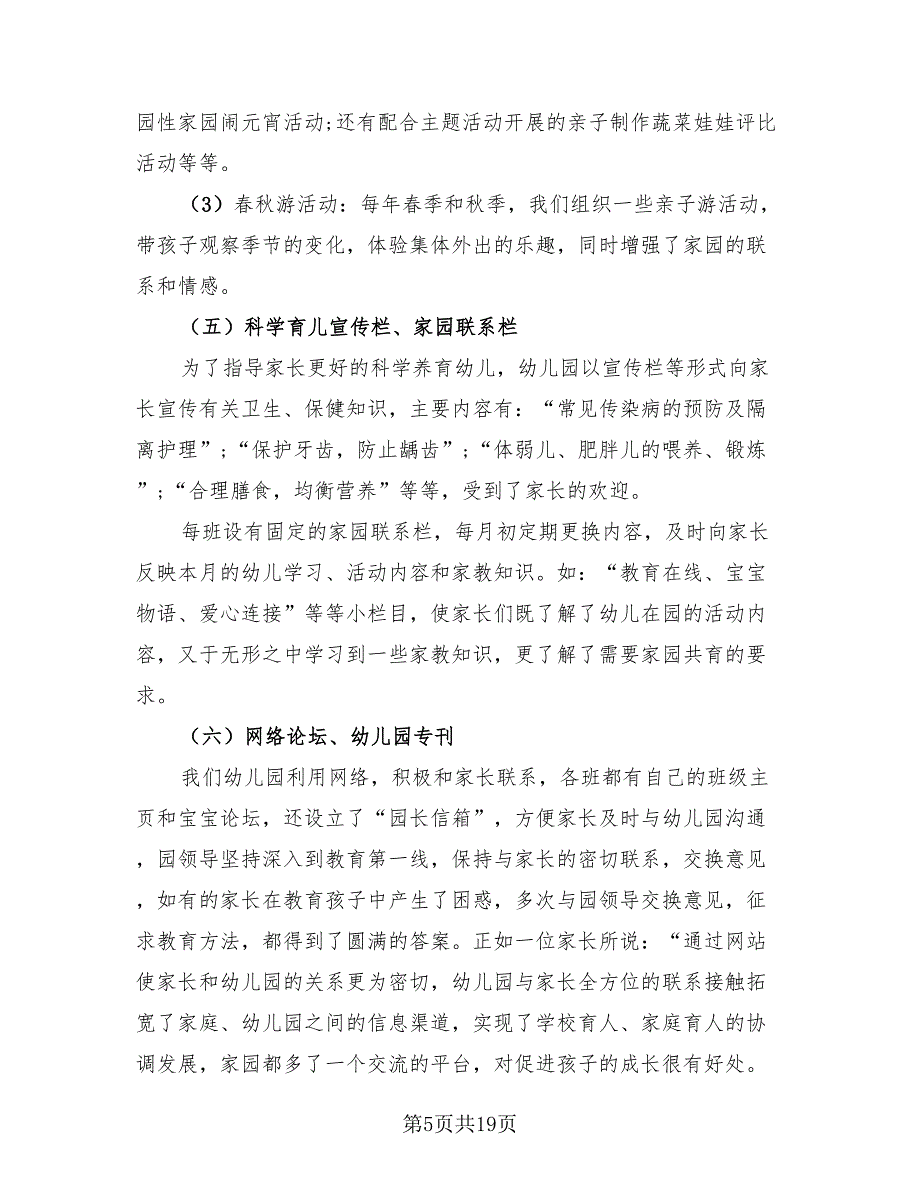 园性家园闹元宵活动;还有配合主题活动开展的亲子制作蔬菜娃娃评比
活动等等。
（3）春秋游活动：每年春季和秋季，我们组织一些亲子游活动，
带孩子观察季节的变化，体验集体外出的乐趣，同时增强了家园的联
系和情感。
（五）科学育儿宣传栏、家园联系栏
为了指导家长更好的科学养育幼儿，幼儿园以宣传栏等形式向家
长宣传有关卫生、保健知识，主要内容有：“常见传染病的预防及隔
离护理”;“保护牙齿，防止龋齿”;“体弱儿、肥胖儿的喂养、锻炼
”;“合理膳食，均衡营养”等等，受到了家长的欢迎。
每班设有固定的家园联系栏，每月初定期更换内容，及时向家长
反映本月的幼儿学习、活动内容和家教知识。如：“教育在线、宝宝
物语、爱心连接”等等小栏目，使家长们既了解了幼儿在园的活动内
容，又于无形之中学习到一些家教知识，更了解了需要家园共育的要
求。
（六）网络论坛、幼儿园专刊
我们幼儿园利用网络，积极和家长联系，各班都有自己的班级主
页和宝宝论坛，还设立了“园长信箱”，方便家长及时与幼儿园沟通
，园领导坚持深入到教育第一线，保持与家长的密切联系，交换意见
，如有的家长在教育孩子中产生了困惑，多次与园领导交换意见，征
求教育方法，都得到了圆满的答案。正如一位家长所说：“通过网站
使家长和幼儿园的关系更为密切，幼儿园与家长全方位的联系接触拓
宽了家庭、幼儿园之间的信息渠道，实现了学校育人、家庭育人的协
调发展，家园都多了一个交流的平台，对促进孩子的成长很有好处。
第5页共19页